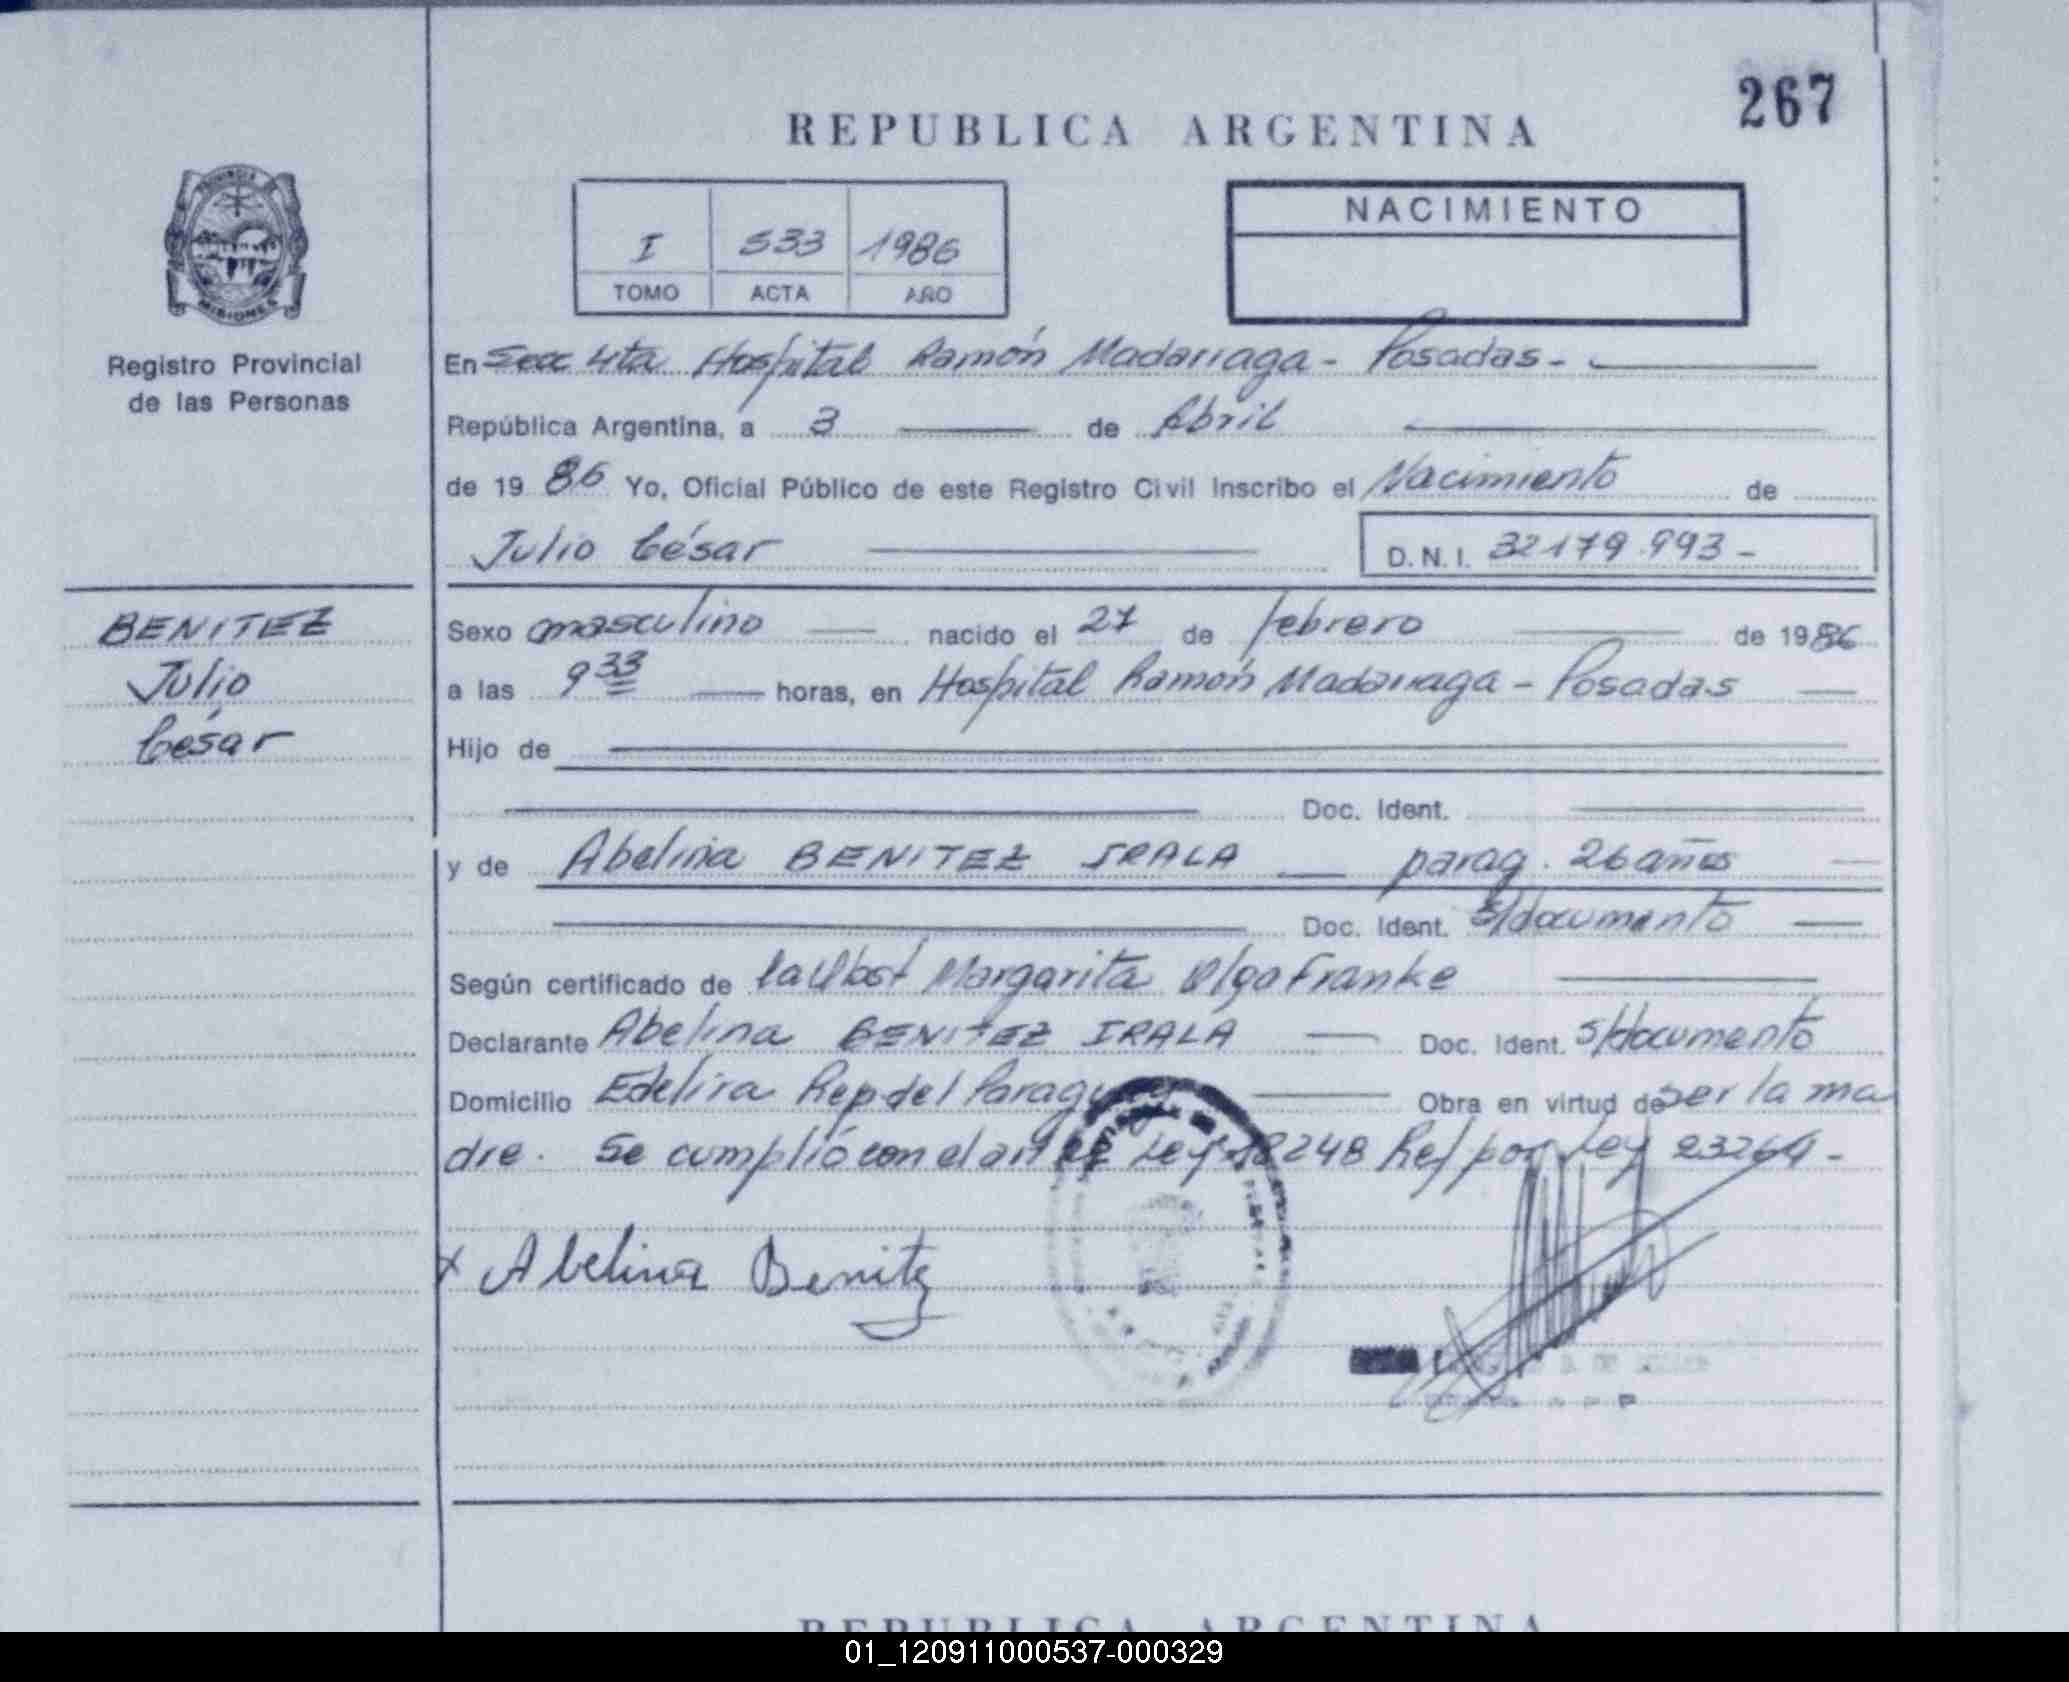 267
REPUBLICA ARGENTINA
I 533 1986
TOMO ACTA AÑO
NACIMIENTO
PROVINCIA DE
MISIONES
Registro Provincial
de las Personas
En Secc 4ta Hospital Ramón Madariaga - Posadas -
República Argentina, a 3 de Abril
de 19 86 Yo, Oficial Público de este Registro Civil inscribo el Nacimiento de
Julio César D.N.I. 32179.993 -
BENITEZ
Julio
César
Sexo masculino nacido el 27 de febrero de 1986
a las 9 33 horas, en Hospital Ramón Madariaga - Posadas
Hijo de
Doc. Ident.
y de Abelina BENITEZ IRALA parag. 26 años
Doc. Ident. s/documento
Según certificado de la Obst Margarita Olga Franke
Declarante Abelina BENITEZ IRALA Doc. Ident. s/documento
Domicilio Edelira Rep del Paraguay Obra en virtud de ser la ma
dre. Se cumplió con el art Ley 18248 Ref por Ley 23264 -
x Abelina Benitez
REPUBLICA ARGENTINA
01_120911000537-000329